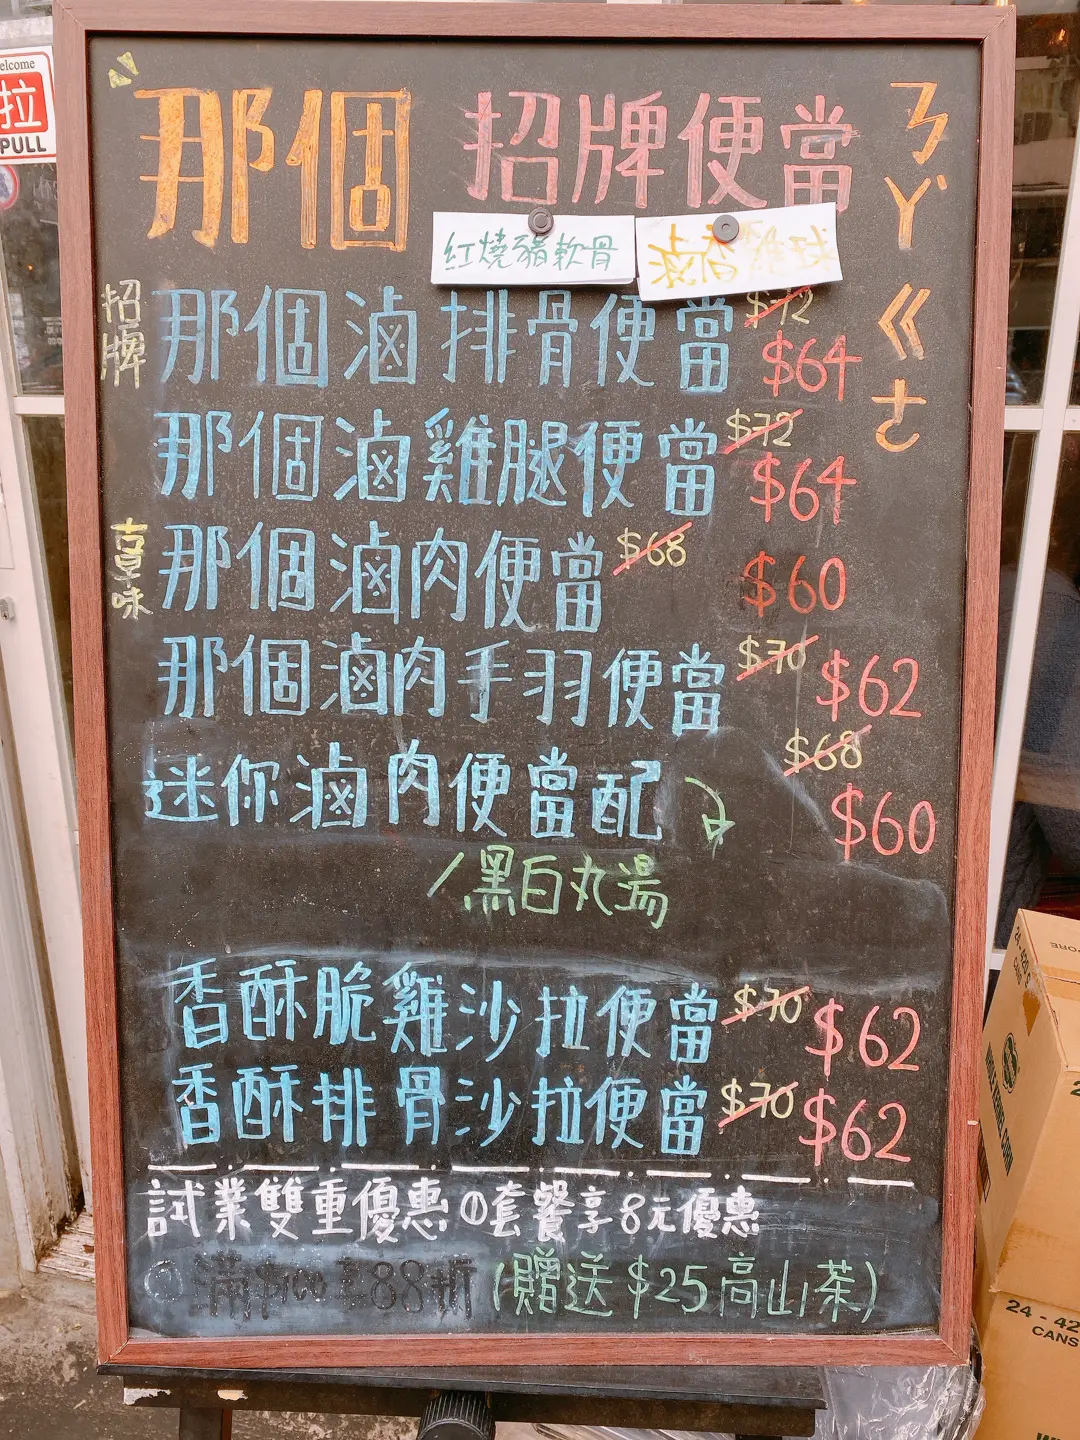 Welcome
拉
PULL
那個 招牌便當
ㄋㄚˋ ㄍㄜ
紅燒豬軟骨 滷香雞球
招牌 那個滷排骨便當 $72 $64
那個滷雞腿便當 $72 $64
古早味 那個滷肉便當 $68 $60
那個滷肉手羽便當 $70 $62
迷你滷肉便當配 $68 $60
/黑白丸湯
香酥脆雞沙拉便當 $70 $62
香酥排骨沙拉便當 $70 $62
試業雙重優惠 ①套餐享8元優惠
滿$100享88折 (贈送$25高山茶)
24 - 42
CANS